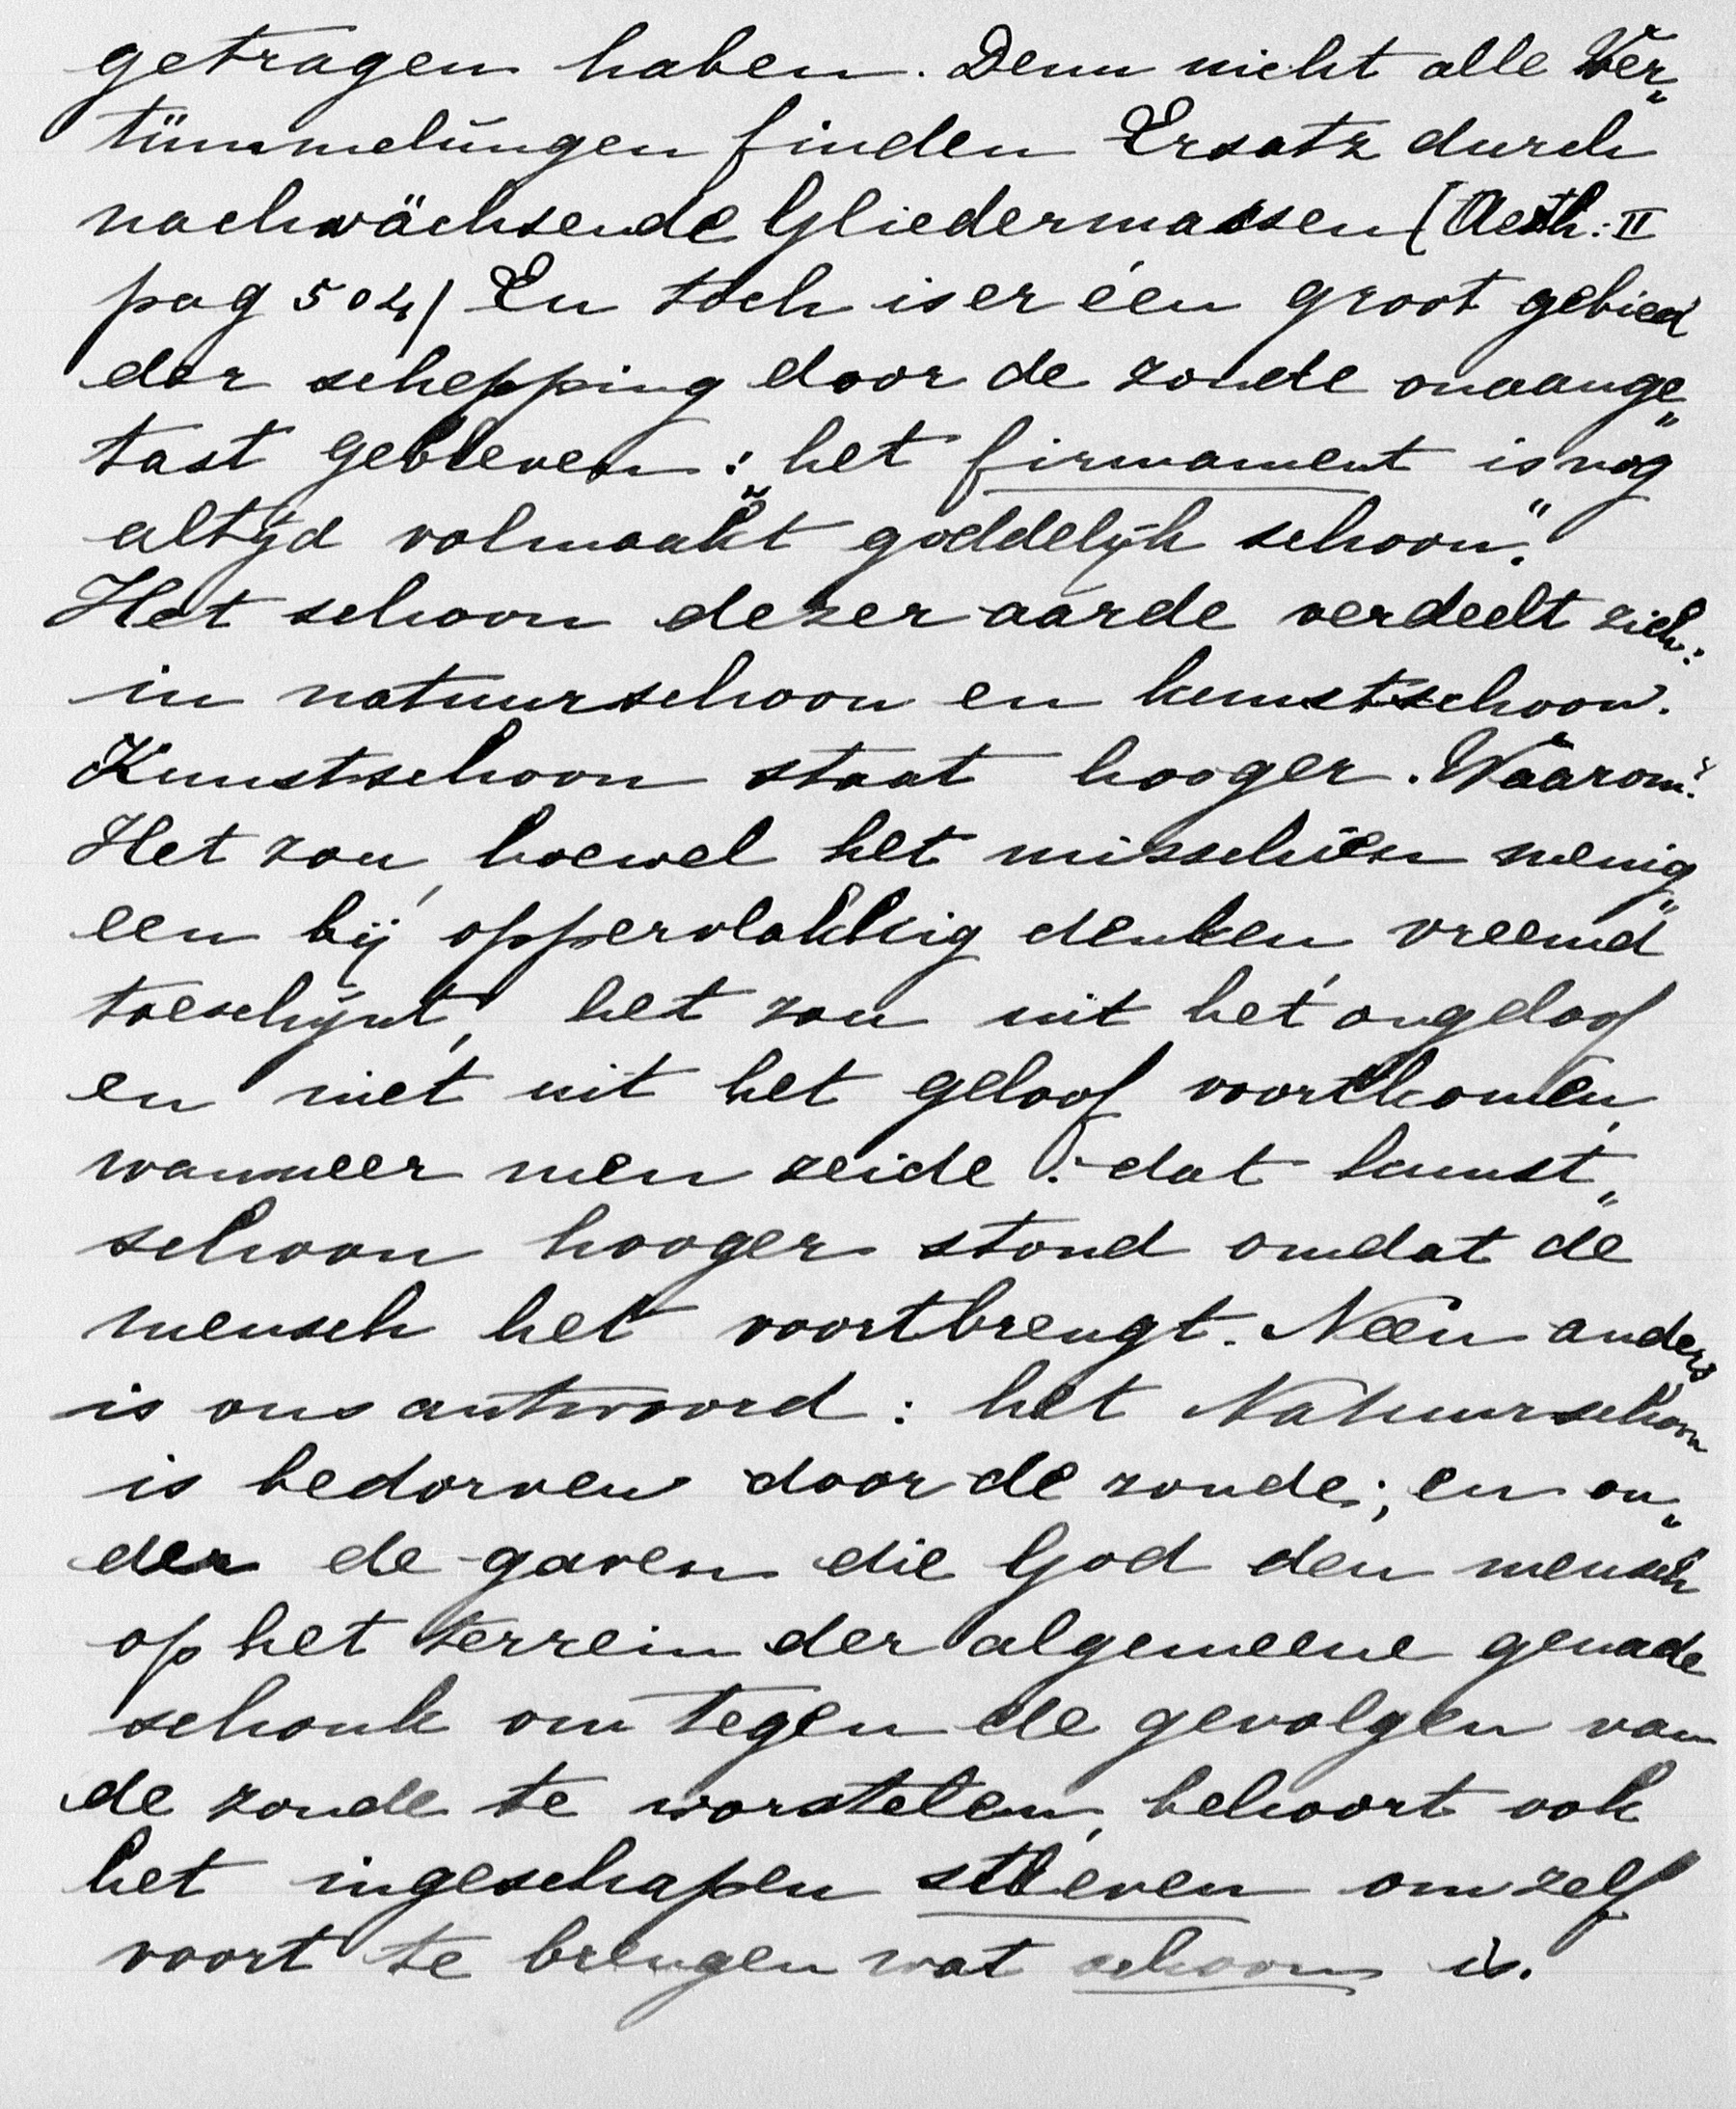 getragen haben. Denn nicht alle Ver„
tümmelŭngen finden Ersatz durch
nachwächsende Gliedermassen (Aesth: II
pag 504) En toch is er één groot gebied
der schepping door de zonde onaange„
tast gebleven : „het firmament is nog
altijd volmaakt goddelijk schoon".
Het schoon dezer aarde verdeelt zich:
in natuurschoon en kunstschoon.
Kunstschoon staat hooger. Waarom?
Het zou, hoewel het misschien menig„
een bij oppervlakkig denken vreemd
toeschijnt, het zou uit het ongeloof
en niet uit het geloof voortkomen,
wanneer men zeide : dat kunst„
schoon hooger stond omdat de
mensch het voortbrengt. Neen anders
is ons antwoord : het Natuurschoon
is bedorven door de zonde; en on„
der de gaven die God den mensch
op het terrein der algemeene genade
schonk om tegen de gevolgen van
de zonde te worstelen, behoort ook
het ingeschapen streven om zelf
voort te brengen wat schoon is.